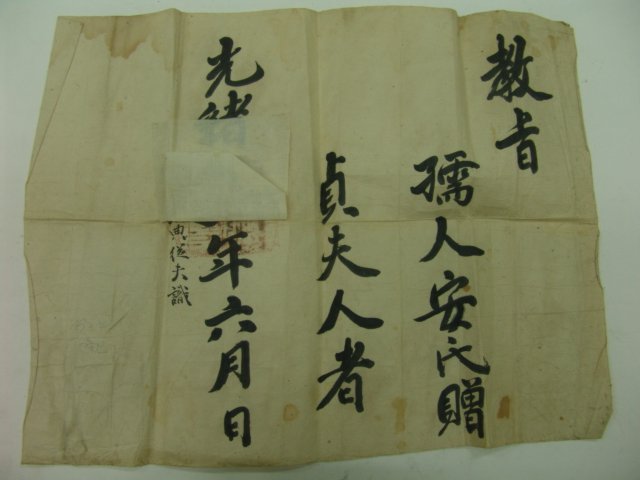 教旨
孺人安氏贈
貞夫人者
光緒年六月日
典從夫職